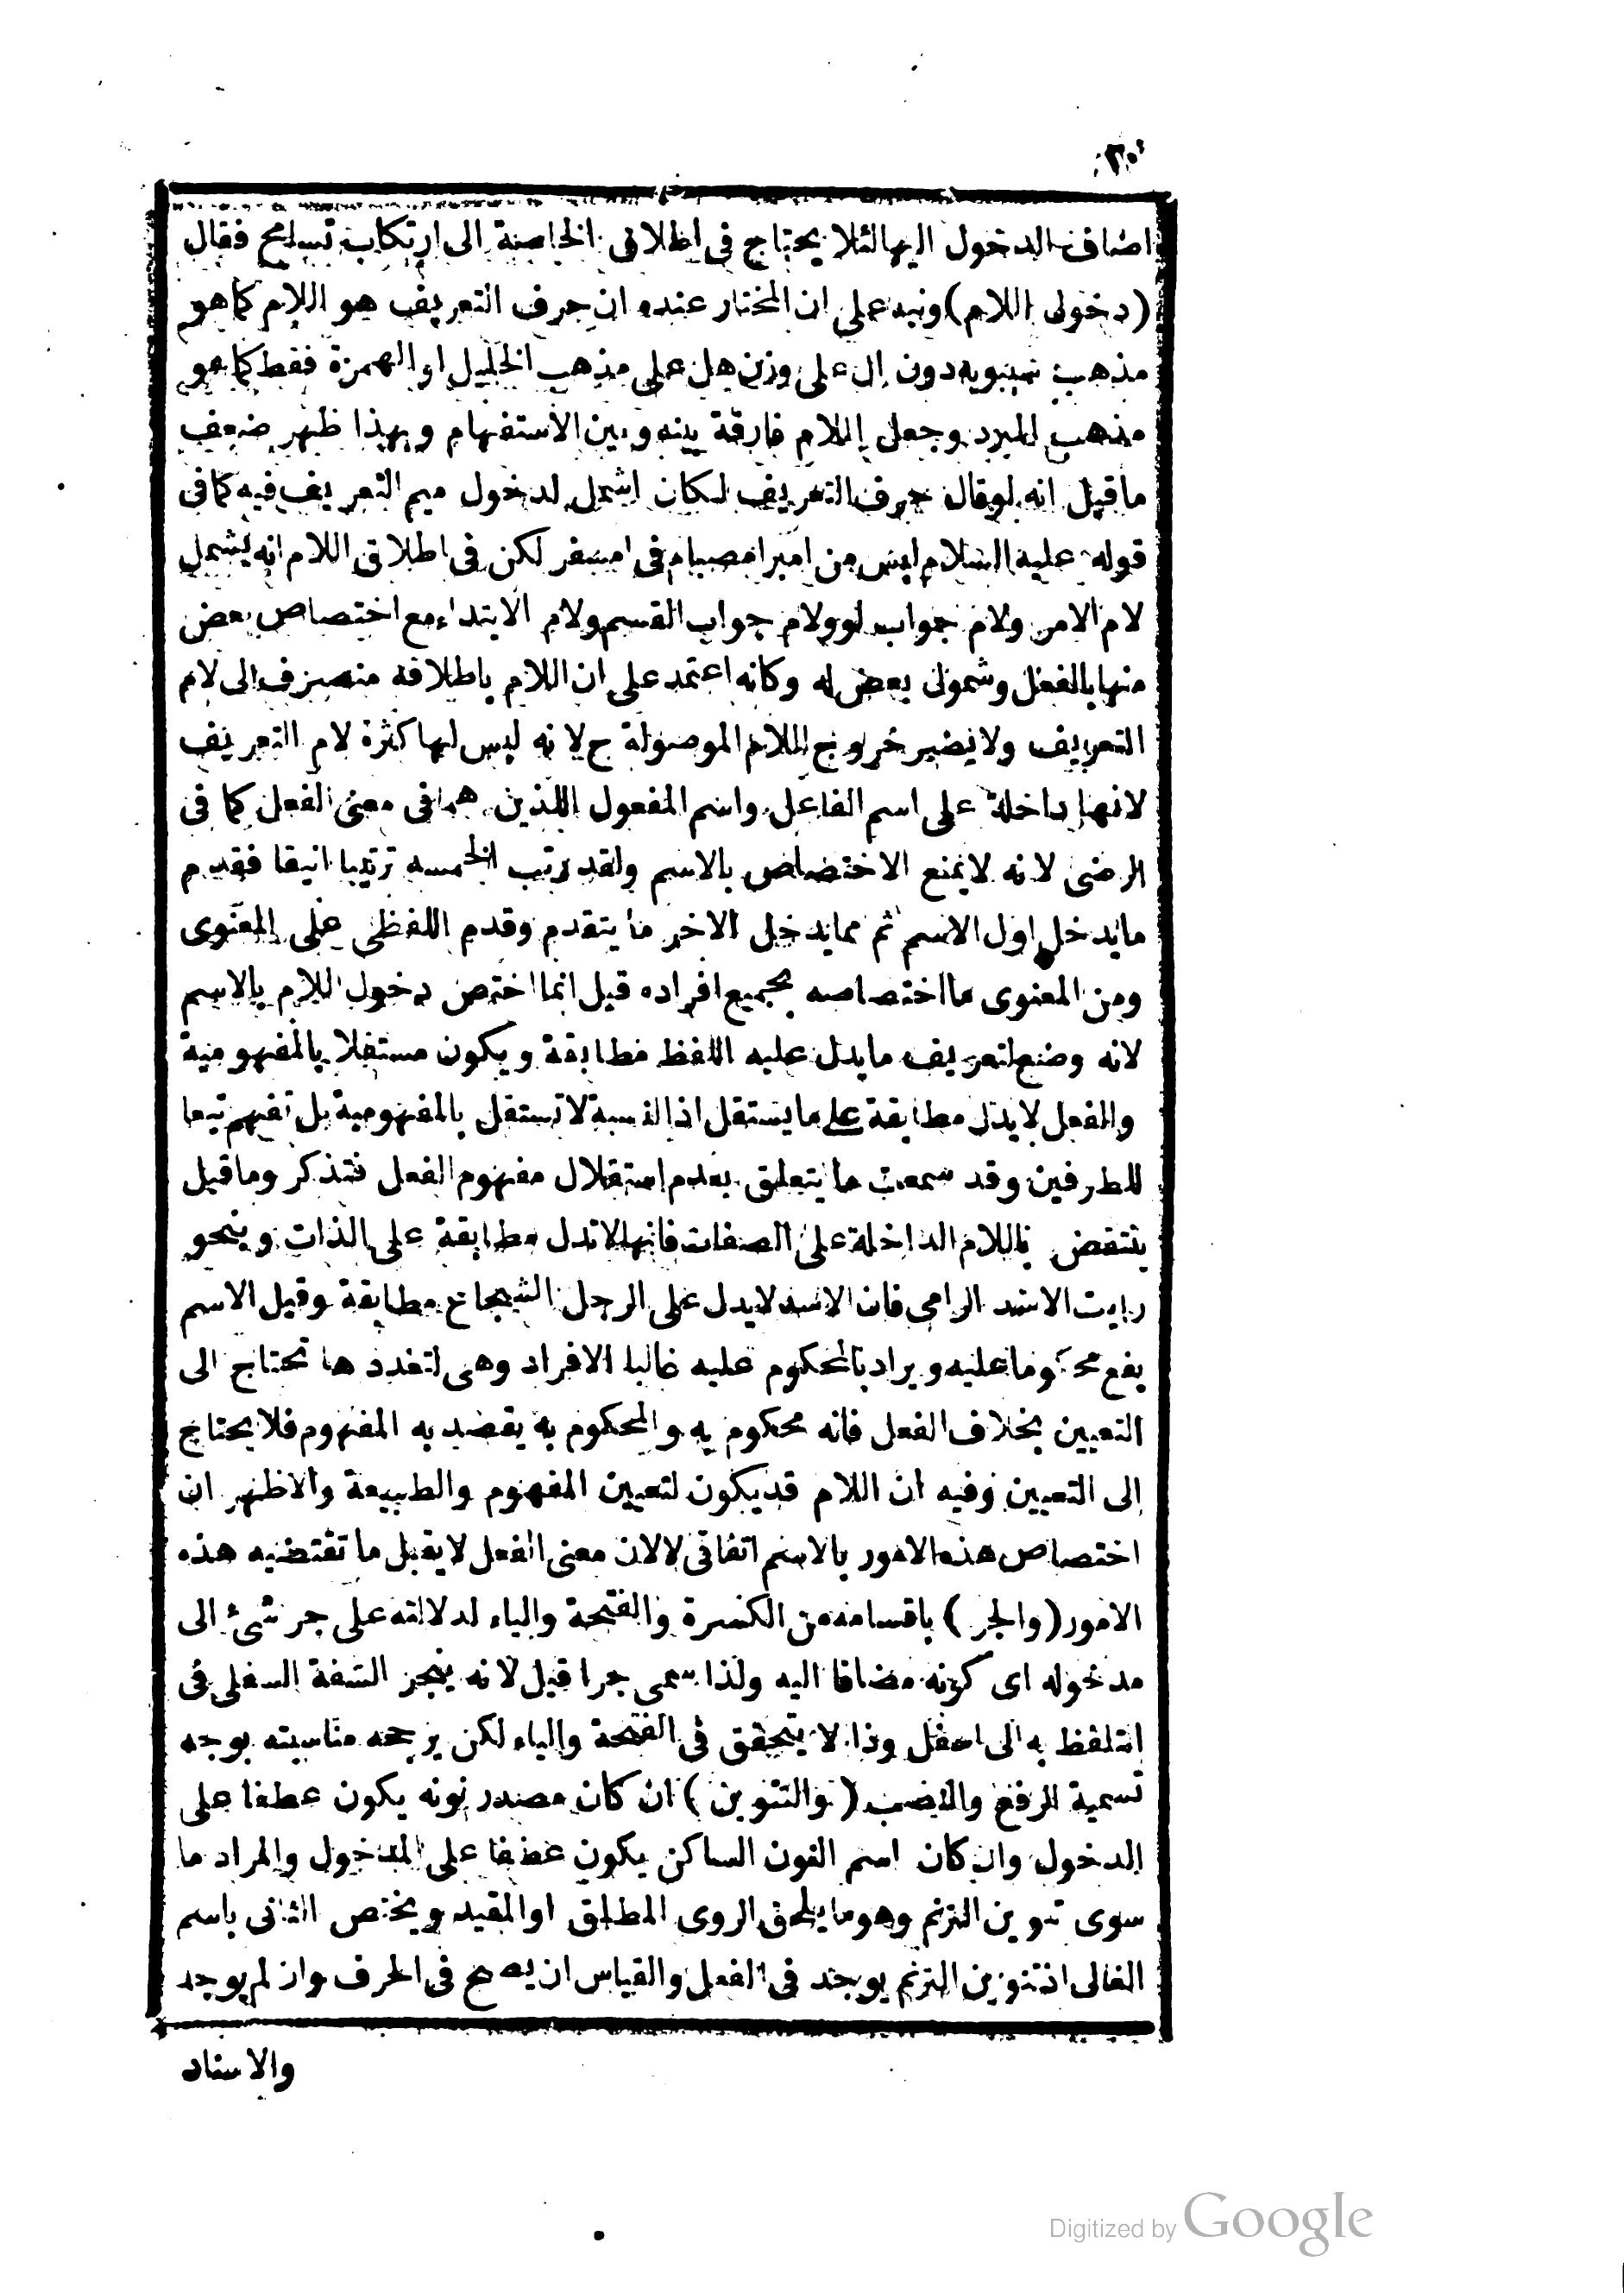 ٢٠
اضاف الدخول اليها لئلا يحتاج فى اطلاق الخاصة الى ارتكاب تسامح فقال
(دخول اللام) ونبه على ان المختار عنده ان حرف التعريف هو اللام كما هو
مذهب سيبويه دون ال على وزن هل على مذهب الخليل او الهمزة فقط كما هو
مذهب المبرد وجعل اللام فارقة بينه وبين الاستفهام وبهذا ظهر ضعف
ما قيل انه لو قال حرف التعريف لكان اشمل لدخول ميم التعريف فيه كما فى
قوله عليه السلام ليس من امبر امصيام فى امسفر لكن فى اطلاق اللام انه يشمل
لام الامر ولام جواب لو ولام جواب القسم ولام الابتداء مع اختصاص بعض
منها بالفعل وشمول بعض له وكانه اعتمد على ان اللام باطلاقه منصرف الى لام
التعريف ولا يضير خروج اللام الموصولة ح لانه ليس لها كثرة لام التعريف
لانها داخلة على اسم الفاعل واسم المفعول اللذين هما فى معنى الفعل كما فى
الرضى لانه لا يمنع الاختصاص بالاسم ولقد رتب الخمسه ترتيبا انيقا فقدم
ما يدخل اول الاسم ثم مما يدخل الاخر ما يتقدم وقدم اللفظى على المعنوى
ومن المعنوى ما اختصاصه بجميع افراده قيل انما اختص دخول اللام بالاسم
لانه وضع لتعريف ما يدل عليه اللفظ مطابقة ويكون مستقلا بالمفهومية
والفعل لا يدل مطابقة على ما يستقل اذ النسبة لا تستقل بالمفهومية بل تفهم تبعا
للطرفين وقد سمعت ما يتعلق بعدم استقلال مفهوم الفعل فتذكر وما قيل
ينتقض باللام الداخلة على الصفات فانها لا تدل مطابقة على الذات وبنحو
رايت الاسد الرامى فان الاسد لا يدل على الرجل الشجاع مطابقة وقيل الاسم
يقع محكوما عليه ويراد بالمحكوم عليه غالبا الافراد وهى لتعددها تحتاج الى
التعيين بخلاف الفعل فانه محكوم به والمحكوم به يقصد به المفهوم فلا يحتاج
الى التعيين وفيه ان اللام قد يكون لتعيين المفهوم والطبيعة والاظهر ان
اختصاص هذه الامور بالاسم اتفاقى لا لان معنى الفعل لا يقبل ما تقتضيه هذه
الامور (والجر) باقسامه من الكسرة والفتحة والياء لدلالته على جر شئ الى
مدخوله اى كونه مضافا اليه ولذا سمى جرا قيل لانه ينجر الشفة السفلى فى
التلفظ به الى اسفل وذا لا يتحقق فى الفتحة والياء لكن يرجحه مناسبته بوجه
تسمية الرفع والنصب (والتنوين) ان كان مصدر نونه يكون عطفا على
الدخول وان كان اسم النون الساكن يكون عطفا على المدخول والمراد ما
سوى تنوين الترنم وهو ما يلحق الروى المطلق او المقيد ويختص الثانى باسم
الغالى اذ تنوين الترنم يوجد فى الفعل والقياس ان يصح فى الحرف وان لم يوجد
والاسناد
Digitized by Google